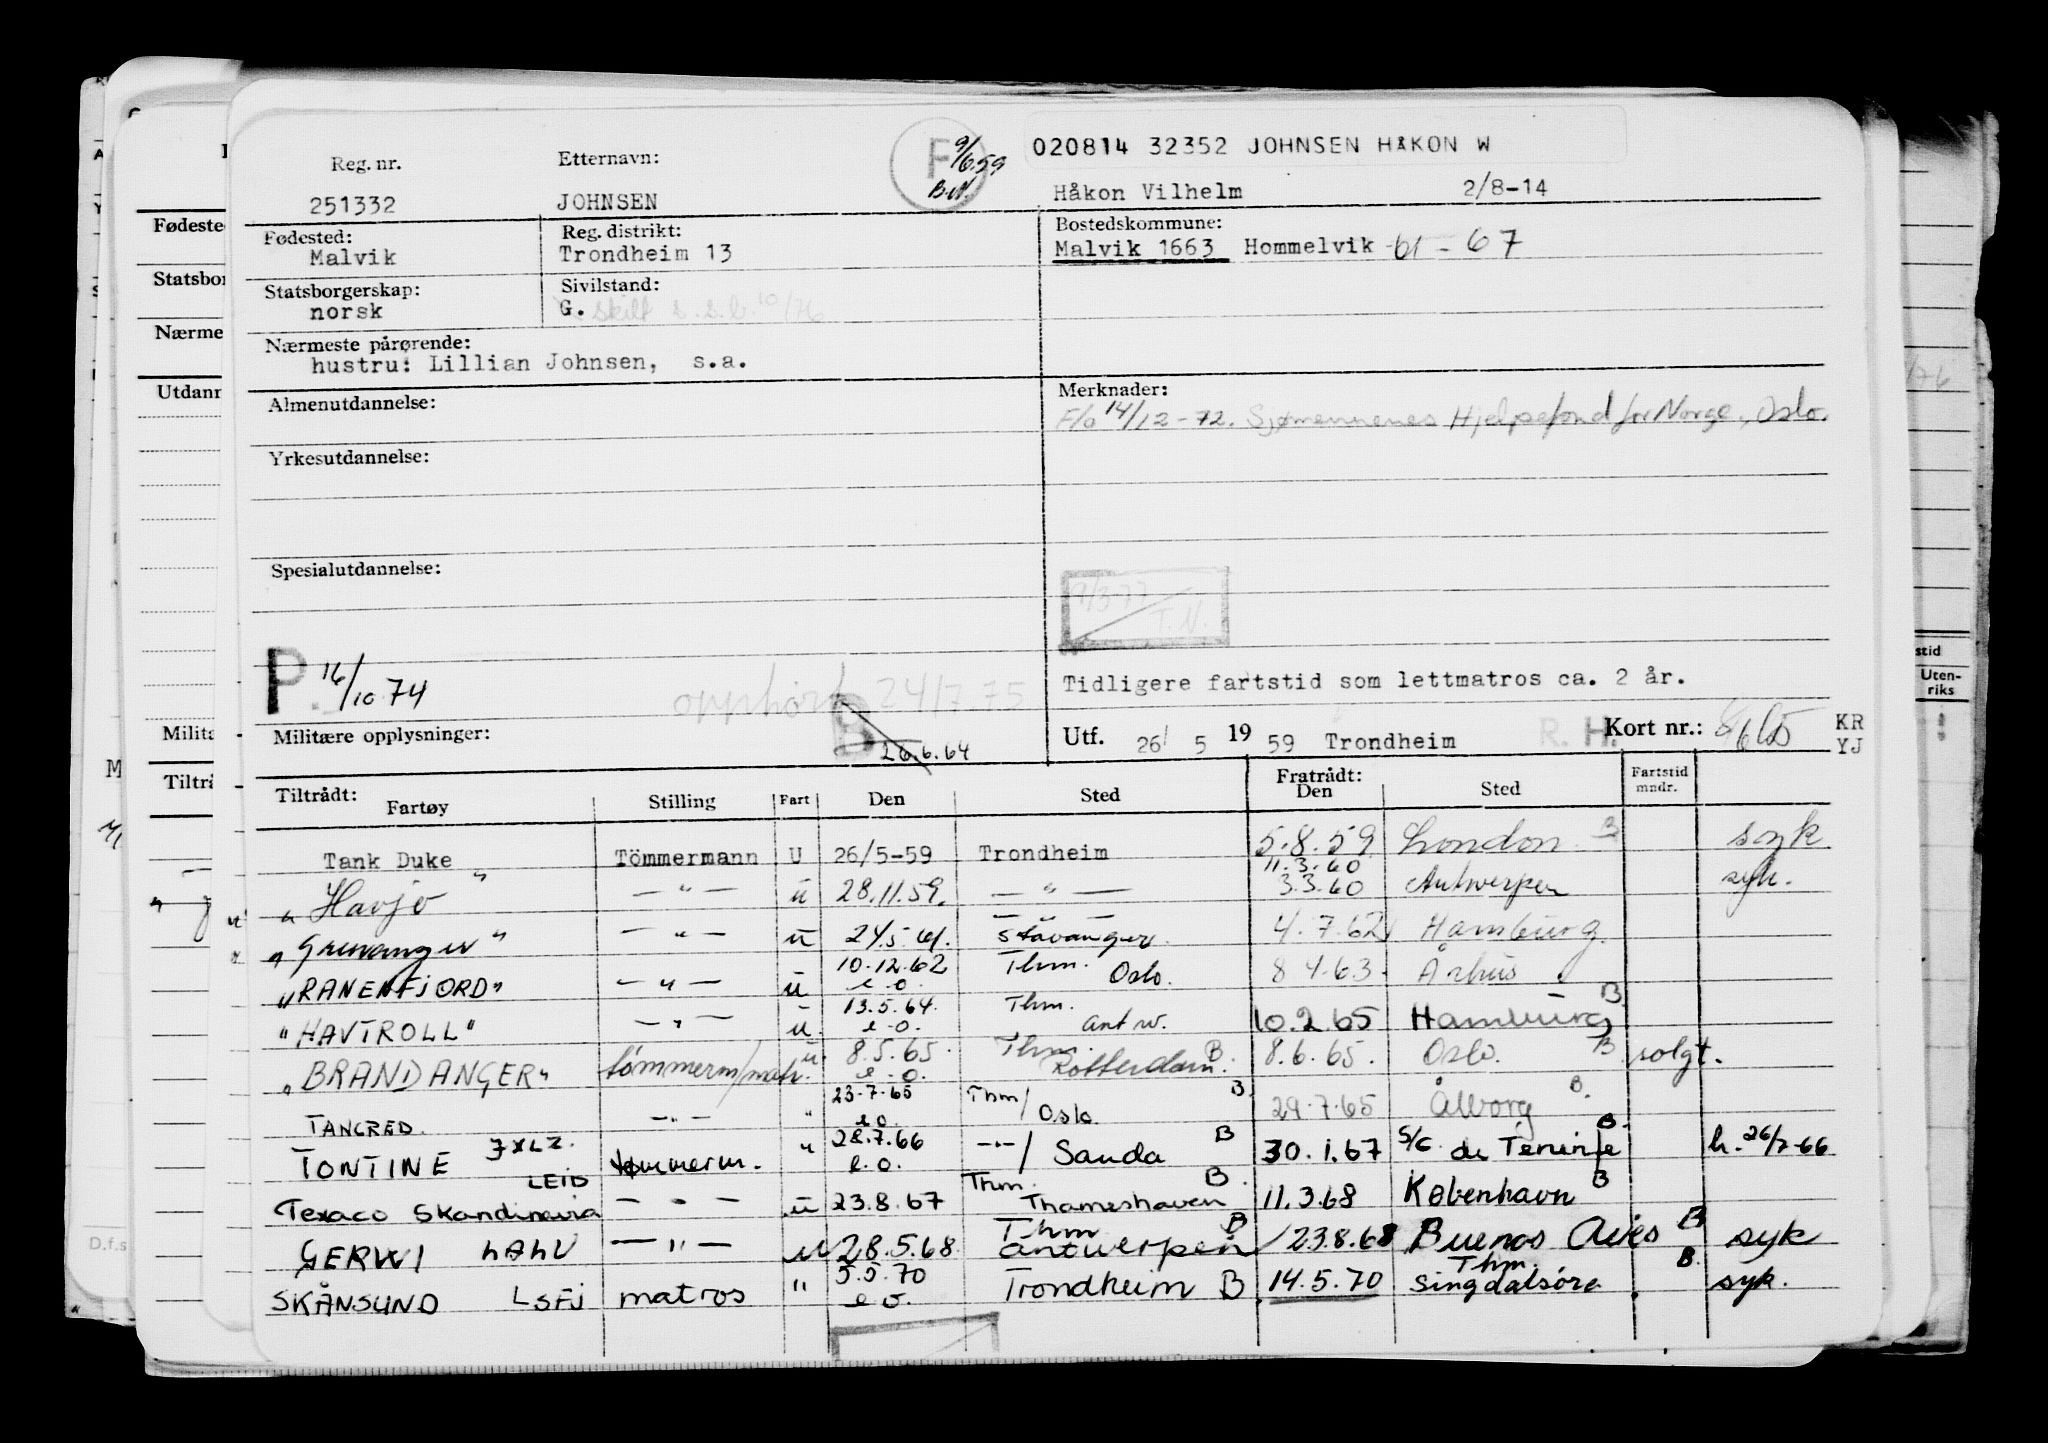 020814 32352 JOHNSEN HÅKON W
Reg. nr. Etternavn: F 9/6.59
251332 JOHNSEN B.N. Håkon Vilhelm 2/8-14
Fødested: Reg. distrikt: Bostedskommune:
Malvik Trondheim 13 Malvik 1663 Hommelvik 61 - 67
Statsborgerskap: Sivilstand:
norsk G. skilt s.s.b. 10/76
Nærmeste pårørende:
hustru: Lillian Johnsen, s.a.
Almenutdannelse: Merknader:
F/o 14/12-72. Sjømennenes Hjelpefond for Norge, Oslo.
Yrkesutdannelse:
Spesialutdannelse:
9/3-77
T.N.
P 16/10 74 opphørt 24/7.75 Tidligere fartstid som lettmatros ca. 2 år.
Militære opplysninger: B 26.6.64 Utf. 26/ 5 19 59 Trondheim R. H. Kort nr.: KR
YJ
Tiltrådt: Fratrådt:
Fartøy Stilling Fart Den Sted Den Sted Fartstid mndr.
Tank Duke Tömmermann U 26/5-59 Trondheim 5.8.59 London B syk
11.3.60
" Havjo " — " — u 28.11.59. — " — 3.3.60 Antwerpen syk.
" Grenanger " — " — u 24.5.61. Stavanger. 4.7.62 Hamburg.
10.12.62 Thm.
" RANENFJORD " — " — u e.o. Oslo. 8 4.63. Århus
13.5.64. Thm.
" HAVTROLL " — " — u. e.o. antw. 10.2.65 Hamburg B
" BRANDANGER " tømmerm/matr. u. 8.5.65. e.o. Thm. Rotterdam. B. 8.6.65. Oslo. B solgt.
23.7.65 Thm/ B
TANCRED. — " — " e.o. Oslo. 29.7.65 Ålborg B.
TONTINE JXLZ. tømmerm. " 28.7.66 e.o. — " — / Sauda B 30.1.67 S/C de Tenerife B. h. 26/7-66
LEID Thm. B.
Texaco Skandinavia — " — u 23.8.67 Thameshaven 11.3.68 København B
Thm B
GERWI LAHV — " — u 28.5.68. antwerpen 23.8.68 Buenos Aires B syk
5.5.70 Thm. B.
SKÅNSUND LSFJ matros " e o. Trondheim B 14.5.70 Singdalsøra. syk.
Fødeste
Statsbor
Nærme
Utdann
Tiltrå
stid
Uten-
riks
D.f.s